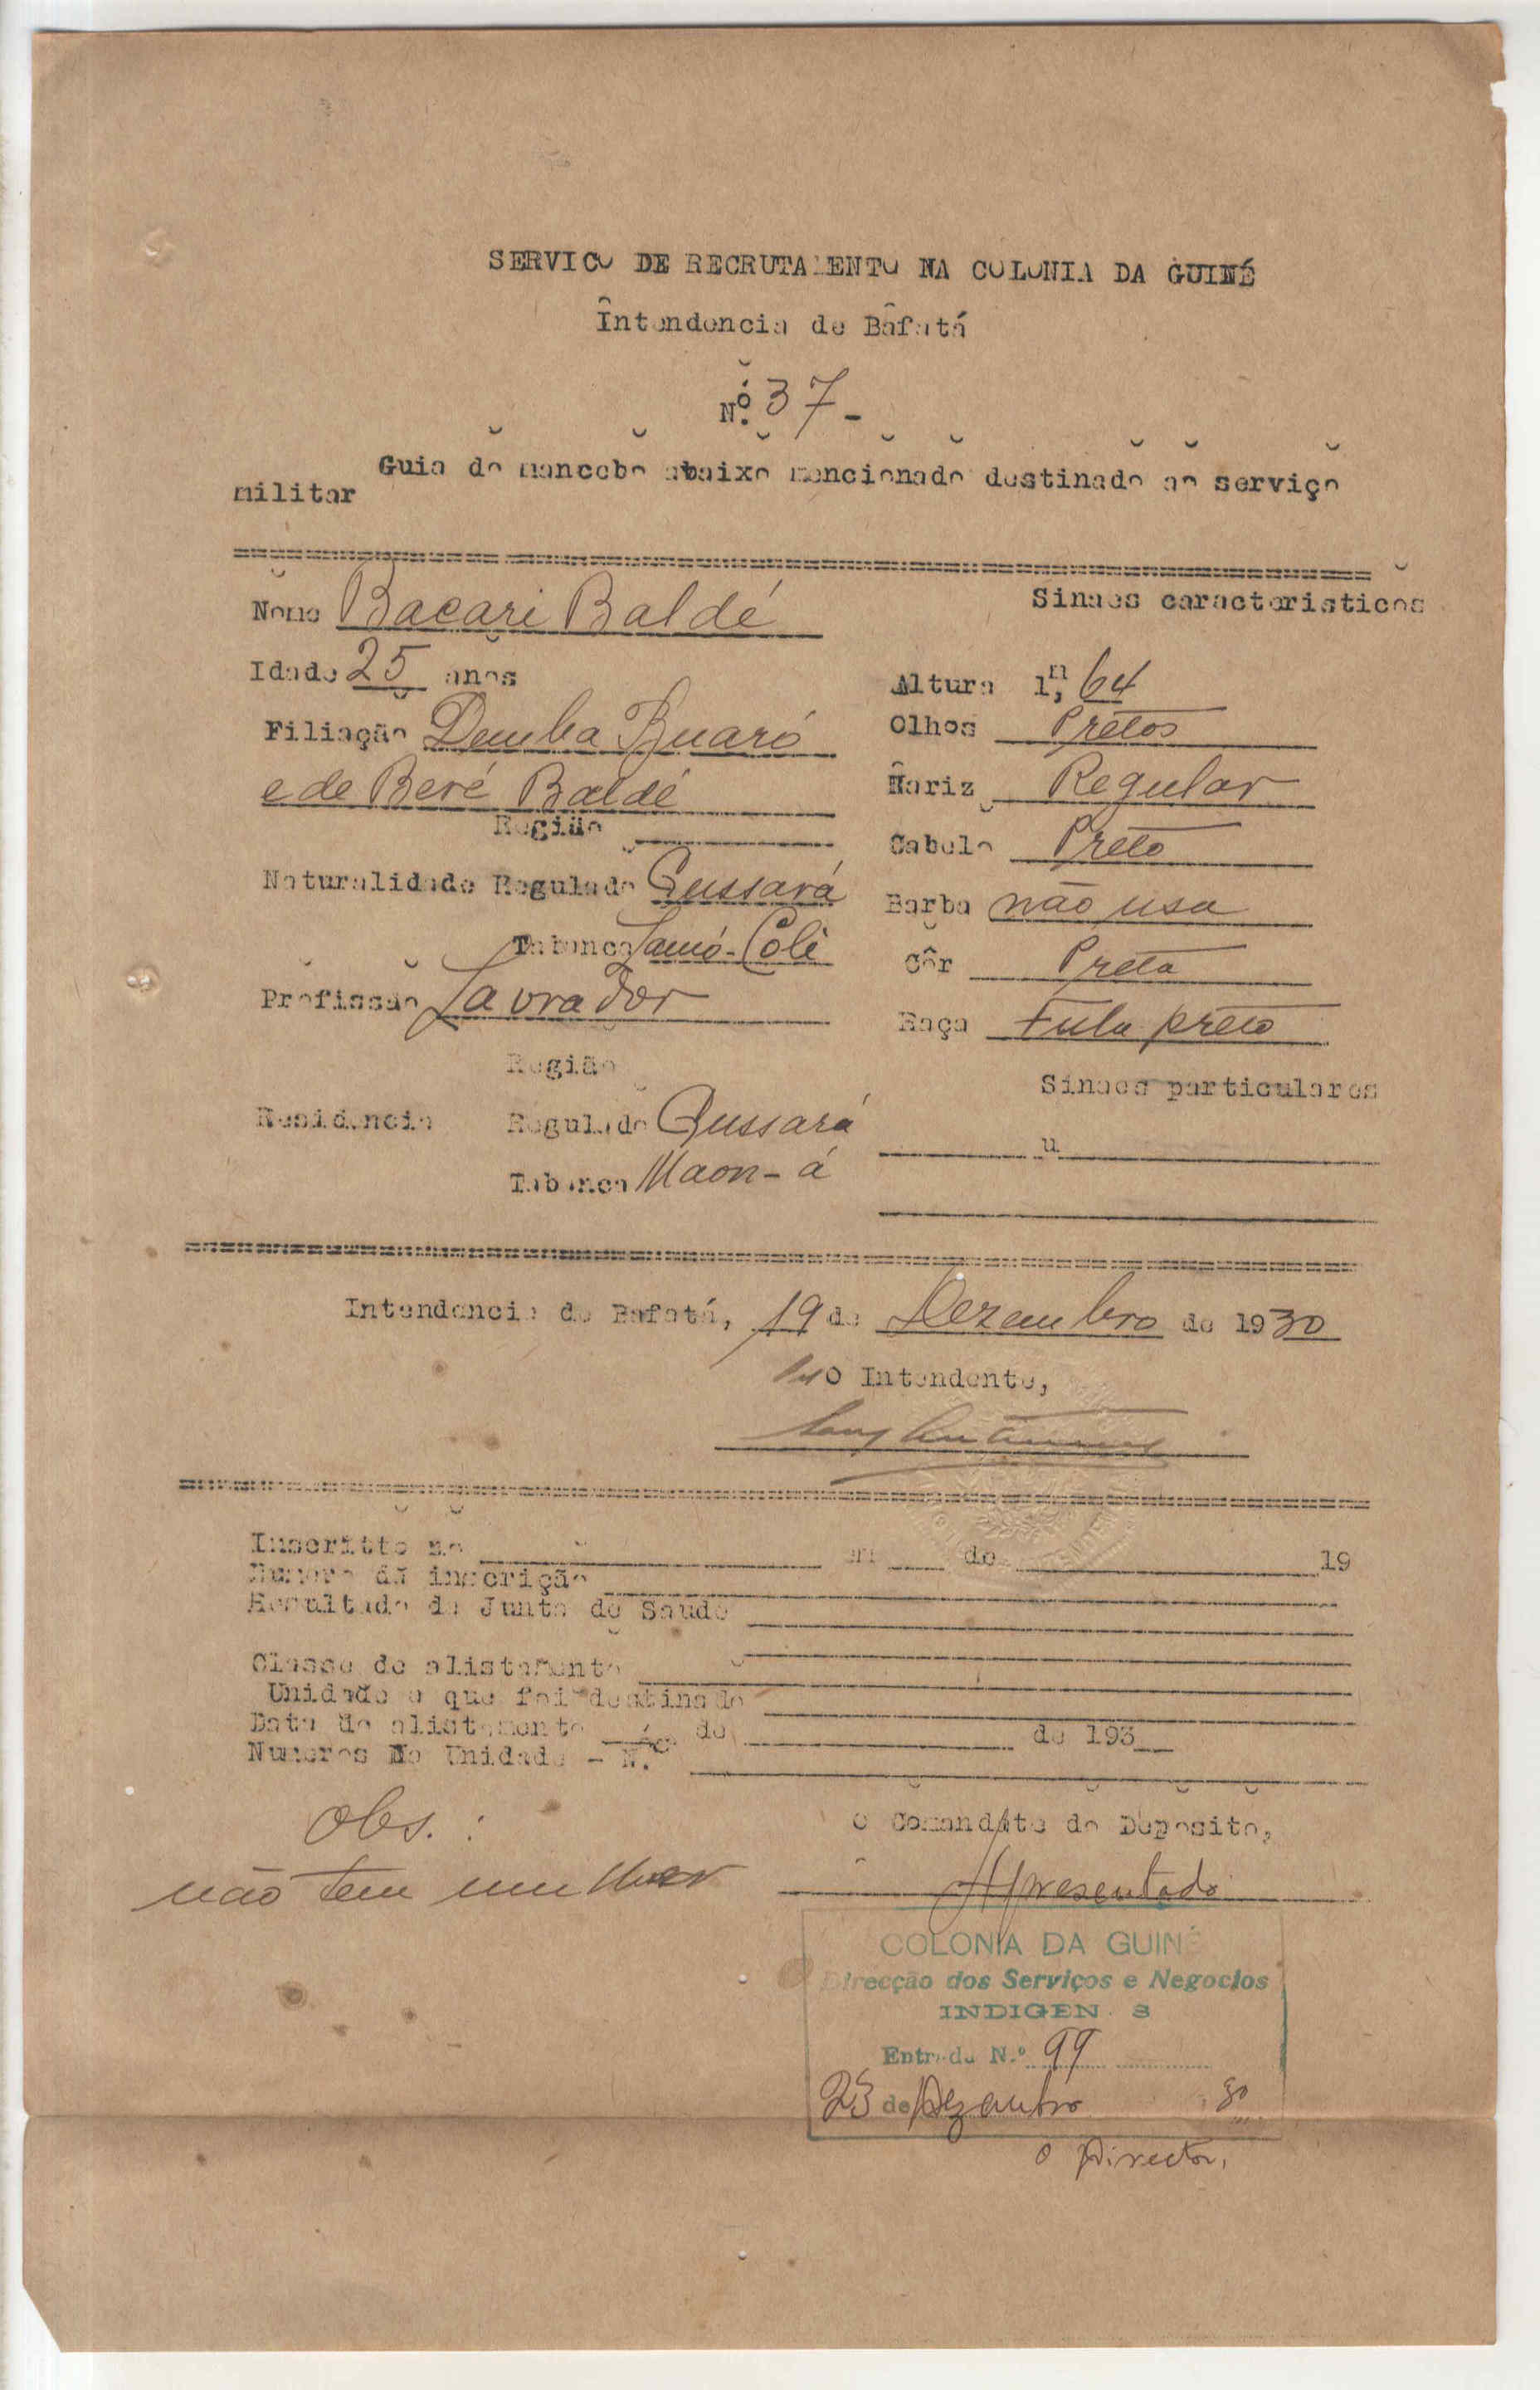 SERVICO DE RECRUTAMENTO NA COLONIA DA GUINÉ
Intendencia de Bafatá
Nº. 37-
Guia do mancebo abaixo mencionado destinado ao serviço
militar
Nome Bacari Baldé
Sinaes caracteristicos
Idade 25 anos
Altura 1,m 64
Filiação Demba Buaró
Olhos Pretos
e de Beré Baldé
Nariz Regular
Região
Cabelo Preto
Naturalidade Regulado Gussará
Barba não usa
Tabanca Samó-Colê
Côr Preta
Profissão Lavrador
Raça Fula preto
Região
Sinaes particulares
Residencia Regulado Gussará
Tabanca Maon-á
Intendencia de Bafatá, 19 de Dezembro de 1930
O Intendente,
Inscritto no em de 19
Numero da inscrição
Resultado da Junta de Saude
Classe do alistamento
Unidade a que foi destinado
Data do alistamento de de 193
Numeros na Unidade - N.º
Obs.:
O Comandáte do Deposito,
não tem mulher
Apresentado
COLONIA DA GUINÉ
Direcção dos Serviços e Negocios
INDIGENAS
Entrada N.º 99
23 de Dezembro 30
O Director,